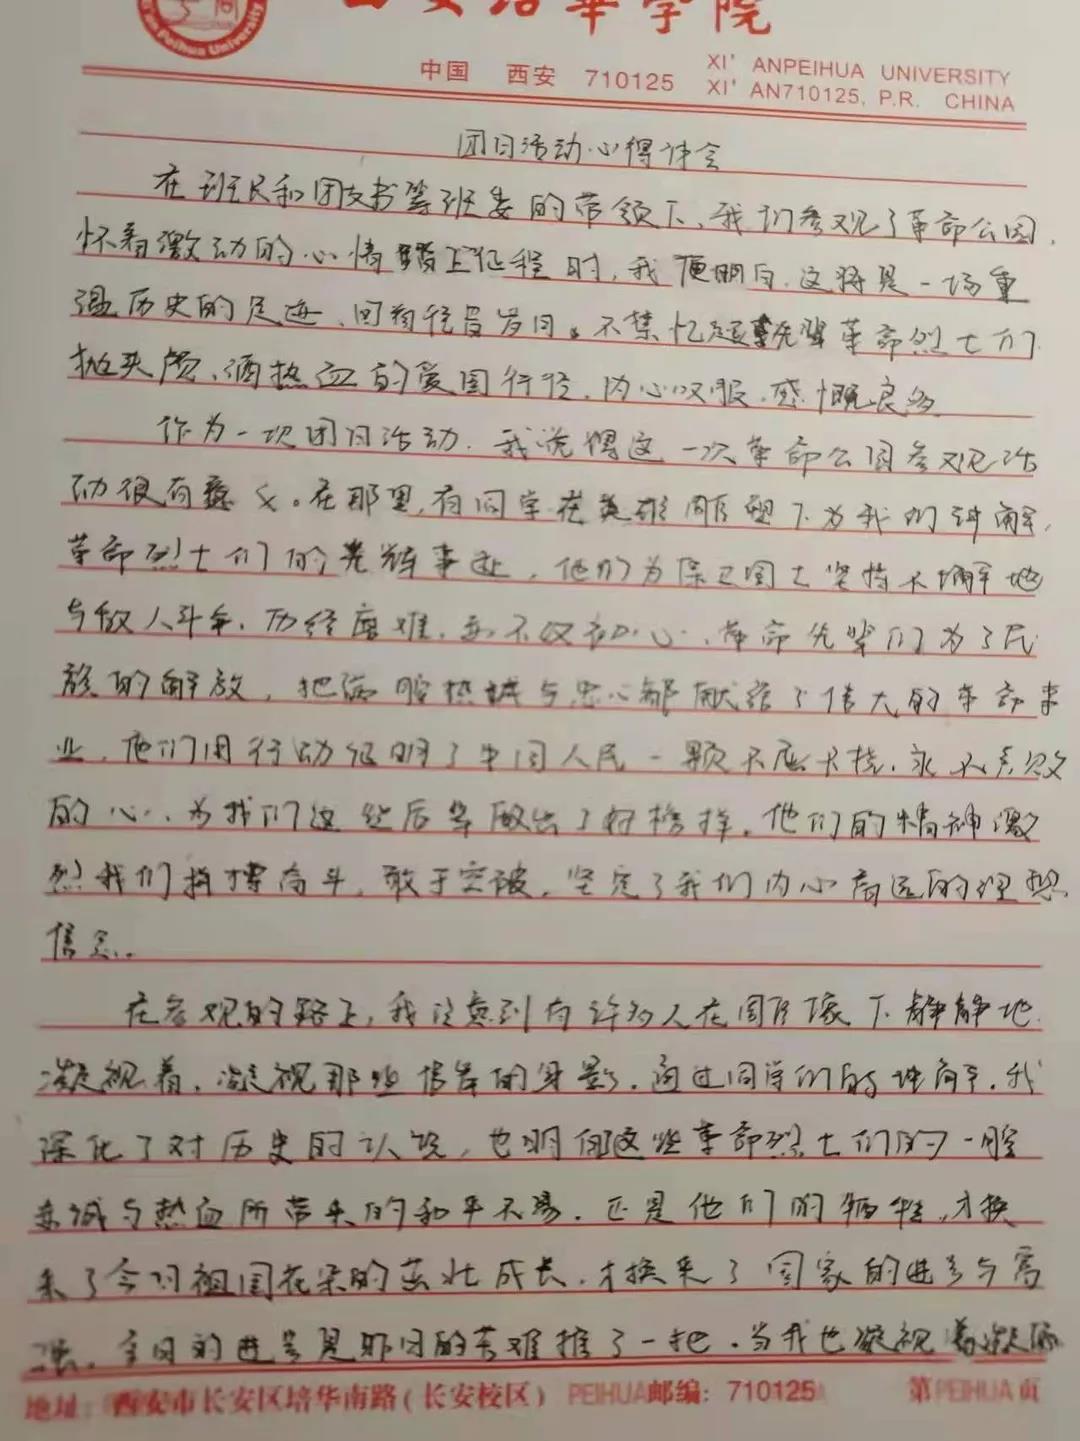 西安培華学院
Peihua University
中国 西安 710125
XI' ANPEIHUA UNIVERSITY
XI' AN710125, P.R. CHINA
团日活动心得体会
在班长和团支书等班委的带领下、我们参观了革命公园，
怀着激动的心情踏上征程时，我便明白，这将是一场重
温历史的足迹、回首往昔岁月。不禁忆起先辈革命烈士们
抛头颅、洒热血的爱国行径，内心叹服，感慨良多
作为一次团日活动，我觉得这一次革命公园参观活
动很有意义。在那里，有同学在英雄雕塑下为我们讲解，
革命烈士们的光辉事迹，他们为保卫国土坚持不懈地
与敌人斗争，历经磨难，亦不改初心，革命先辈们为了民
族的解放，把满腔热诚与忠心都献给了伟大的革命事
业，他们用行动证明了中国人民一颗不屈不挠，永不言败
的心，为我们这些后辈做出了好榜样，他们的精神激
烈我们拼搏奋斗，敢于突破，坚定了我们内心高远的理想
信念。
在参观的路上，我注意到有许多人在雕像下静静地
凝视着，凝视那些伟岸的身影，通过同学们的讲解，我
深化了对历史的认识，也明白这些革命烈士们的一腔
赤诚与热血所带来的和平不易，正是他们的牺牲，才换
来了今日祖国花朵的茁壮成长，才换来了国家的进步与富
强，今日的进步是昨日的苦难推了一把，当我也凝视着
地址：西安市长安区培华南路（长安校区） PEIHUA邮编：710125
第PEIHUA页